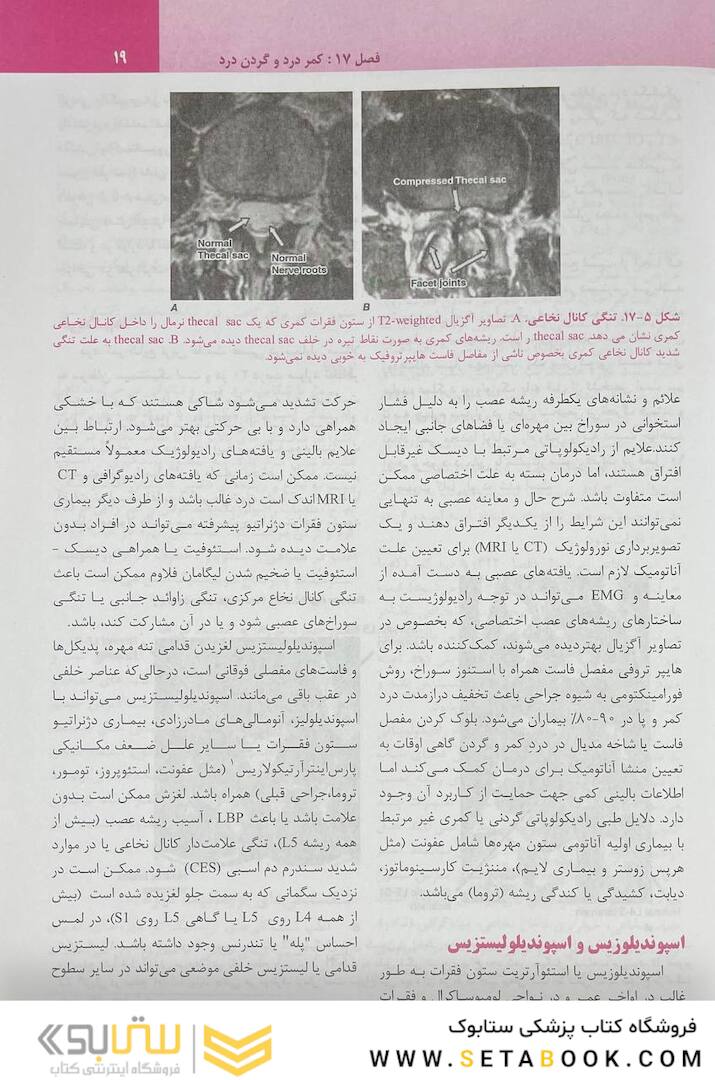 فصل ۱۷ : کمر درد و گردن درد
۱۹
Compressed Thecal sac
Normal
Thecal sac
Normal
Nerve roots
Facet joints
A
B
شکل ۵-۱۷. تنگی کانال نخاعی. A. تصاویر آگزیال T2-weighted از ستون فقرات کمری که یک thecal sac نرمال را داخل کانال نخاعی
کمری نشان می دهد. thecal sac ر است. ریشه‌های کمری به صورت نقاط تیره در خلف thecal sac دیده می‌شود. B. thecal sac به علت تنگی
شدید کانال نخاعی کمری بخصوص ناشی از مفاصل فاست هایپرتروفیک به خوبی دیده نمی‌شود.
علائم و نشانه‌های یکطرفه ریشه عصب را به دلیل فشار
استخوانی در سوراخ بین مهره‌ای یا فضاهای جانبی ایجاد
کنند.علایم از رادیکولوپاتی مرتبط با دیسک غیرقابل
افتراق هستند، اما درمان بسته به علت اختصاصی ممکن
است متفاوت باشد. شرح حال و معاینه عصبی به تنهایی
نمی‌توانند این شرایط را از یکدیگر افتراق دهند و یک
تصویربرداری نورولوژیک (CT یا MRI) برای تعیین علت
آناتومیک لازم است. یافته‌های عصبی به دست آمده از
معاینه و EMG می‌تواند در توجه رادیولوژیست به
ساختارهای ریشه‌های عصب اختصاصی، که بخصوص در
تصاویر آگزیال بهتردیده می‌شوند، کمک‌کننده باشد. برای
هایپر تروفی مفصل فاست همراه با استنوز سوراخ، روش
فورامینکتومی به شیوه جراحی باعث تخفیف درازمدت درد
کمر و پا در ۹۰-۸۰٪ بیماران می‌شود. بلوک کردن مفصل
فاست یا شاخه مدیال در درد کمر و گردن گاهی اوقات به
تعیین منشا آناتومیک برای درمان کمک می‌کند اما
اطلاعات بالینی کمی جهت حمایت از کاربرد آن وجود
دارد. دلایل طبی رادیکولوپاتی گردنی یا کمری غیر مرتبط
با بیماری اولیه آناتومی ستون مهره‌ها شامل عفونت (مثل
هرپس زوستر و بیماری لایم)، مننژیت کارسینوماتوز،
دیابت، کشیدگی یا کندگی ریشه (تروما) می‌باشد.
اسپوندیلوزیس و اسپوندیلولیستزیس
اسپوندیلوزیس یا استئوآرتریت ستون فقرات به طور
غالب در اواخر عمر و در نواحی لومبوساکرال و فقرات
حرکت تشدید می‌شود شاکی هستند که با خشکی
همراهی دارد و با بی حرکتی بهتر می‌شود. ارتباط بین
علایم بالینی و یافته‌های رادیولوژیک معمولاً مستقیم
نیست. ممکن است زمانی که یافته‌های رادیوگرافی و CT
یا MRI اندک است درد غالب باشد و از طرف دیگر بیماری
ستون فقرات دژنراتیو پیشرفته می‌تواند در افراد بدون
علامت دیده شود. استئوفیت یا همراهی دیسک –
استئوفیت یا ضخیم شدن لیگامان فلاوم ممکن است باعث
تنگی کانال نخاع مرکزی، تنگی زاوائد جانبی یا تنگی
سوراخ‌های عصبی شود و یا در آن مشارکت کند، باشد.
اسپوندیلولیستزیس لغزیدن قدامی تنه مهره، پدیکل‌ها
و فاست‌های مفصلی فوقانی است، درحالی‌که عناصر خلفی
در عقب باقی می‌مانند. اسپوندیلولیستزیس می‌تواند با
اسپوندیلولیز، آنومالی‌های مادرزادی، بیماری دژنراتیو
ستون فقرات یا سایر علل ضعف مکانیکی
پارس‌اینترآرتیکولاریس۱ (مثل عفونت، استئوپروز، تومور،
تروما،جراحی قبلی) همراه باشد. لغزش ممکن است بدون
علامت باشد یا باعث LBP ، آسیب ریشه عصب (بیش از
همه ریشه L5)، تنگی علامت‌دار کانال نخاعی یا در موارد
شدید سندرم دم اسبی (CES) شود. ممکن است در
نزدیک سگمانی که به سمت جلو لغزیده شده است (بیش
از همه L4 روی L5 یا گاهی L5 روی S1)، در لمس
احساس "پله" یا تندرنس وجود داشته باشد. لیستزیس
قدامی یا لیستزیس خلفی موضعی می‌تواند در سایر سطوح
فروشگاه کتاب پزشکی ستابوک
WWW.SETABOOK.COM
ستابوک
فروشگاه اینترنتی کتاب